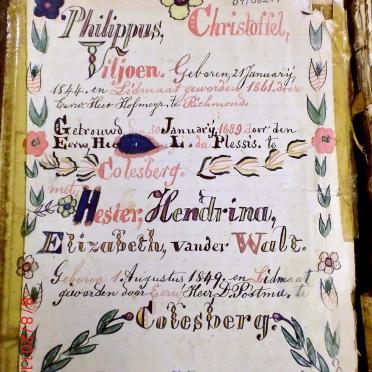 Philippus, Christoffel,
Viljoen. Geboren, 21 Januarij,
1844. en Lidmaat geworden 1861. door
Eerw. Heer Hofmeyr, te Richmond.
Getrouwd, 30 Januarij 1889 door den
Eerw L. du Plessis. te
Colesberg.
met,
Hester, Hendrina,
Elizabeth, vander Walt.
Geboren 1 Augustus 1849. en Lidmaat
geworden door Eerw Heer D. Postma. te
Colesberg.